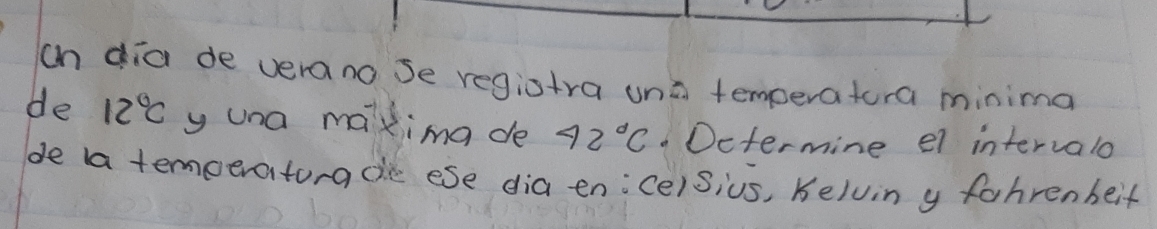 Un día de verano se registra una temperatura minima
de 12°C y una maxima de 42°C. Determine el intervalo
de la temperatura de ese dia en: celsius, Kelvin y fahrenheit